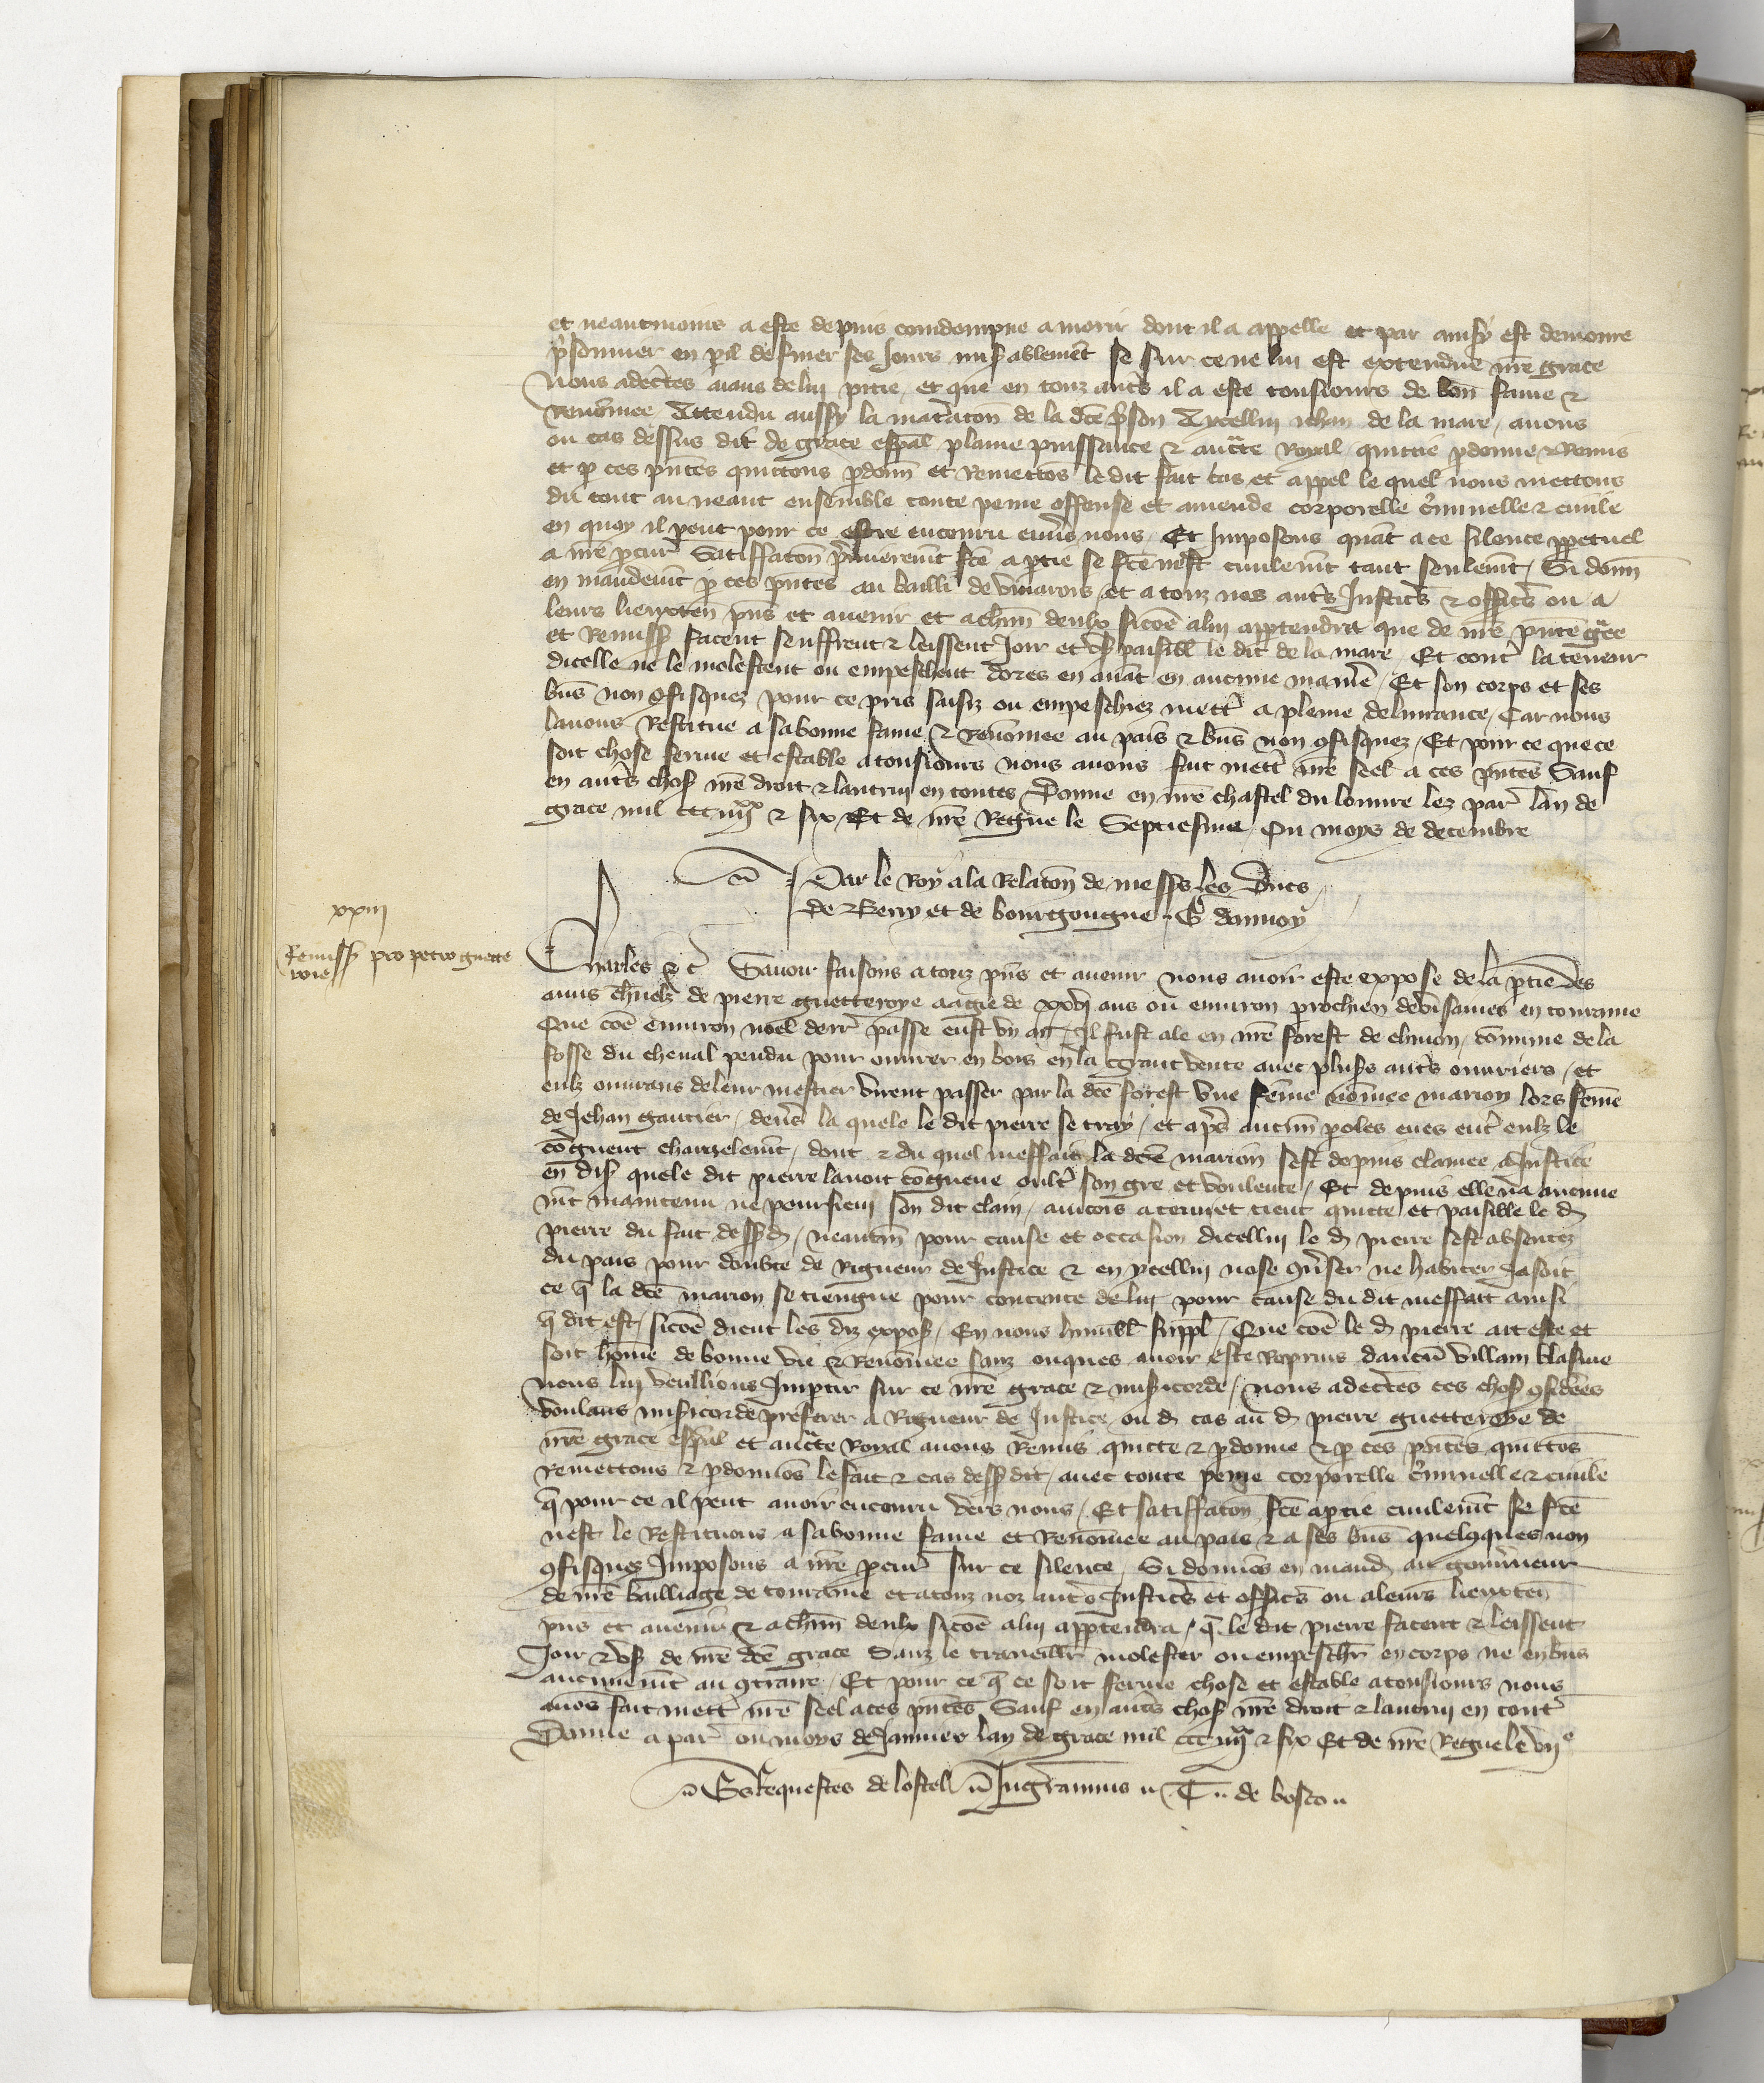 et neantmoins a este depuis condempne a morir dont il a appelle et par ainsy est demoure
p̃sonnier en pil de finer ses Jours mis̃ablem̃t se sur ce ne lui est extendue nr̃e grace
Nous adec̃tes aians de lui pitie et que en touz aut̃s il a este tousiours de bon̄ fame &
Renom̃ee Attendu aussy la mac̃ration de la dc̃e p̃son A ycellui Jehan de la mare auons
ou cas dessus dit de grace esp̃al plaine puissance & auct̃te Royal quittie pdonne & Remis
et p ces pñtes quittons pdonn̄ et Remettõs le dit fait cas et appel le quel nous mettons
du tout au neant ensemble toute peine offense et amende corporelle c̃iminelle & ciuile
en quoy il peut pour ce estre encouru enu̾s nous Et Imposons quãt a ce silence ppetuel
a nr̃e pcur̃ Satiffacõn p̃mierem̃t fc̃e a ptie se fc̃e nest ciuilem̃t tant seulem̃t Si donn̄
en mandem̃t p ces pñtes au bailli de et a touz nos aut̃s Justic̃s & offic̃s ou a
leurs lieuxten̄ pñs et auenir et a chũn deulx sicõe a lui appartendra que de nr̃e pñte grãce
et Remiss̃ facent seuffrent & leissent Joir et vs̃ paisibl̃ le dit de la mare Et contr̃ la teneur
dicelle ne le molestent ou empeschent dores en auãt en aucune manie᷑ Et son corps et ses
biñs non ꝯfisquez pour ce pris saisiz ou empeschiez mett̃ a pleine deliurance Car nous
lauons Restitue a sa bonne fame & Renom̃ee au pais & biñs non ꝯfisquez Et pour ce que ce
soit chose ferme et estable a tousiours nous auons fait mett̃ nr̃e seel a ces pñtes Sauf
en aut̃s chos̃ nr̃e droit & lautrui en toutes Donne en nr̃e chastel du louure lez par̃ lan de
grace mil ccc iiijxx & six Et de nr̃e Regne le Septiesme Ou moys de decembre
Par le Roy a la Relacõn de mess̃s les Ducs
de Berry et de bourgongne G dannoy
xxiij
Remiss̃ pro petro guette
roie
Charles &c̃ Sauoir faisons a touz pñs et auenir nous auoir este expose de la ptie des
amis ch̃nelz de pierre guetteroye aagie de xxvj ans ou enuiron prochien deb̃isames en touraine
Que cõe enuiron noel derr̃ passe eust vn an Il fust ale en nr̃e forest de chinon cõmme de la
fosse du cheual pendu pour ouurer en bois en la grant vente auec plus̃s aut̃s ouuriers et
eulz ouurans de leur mestier virent passer par la dc̃e forest vne fem̃e nom̃ee marion lors fem̃e
de Jehan gautier deu̾s la quele le dit pierre se tray et ap̃s aucun̄ poles eues ent̃ eulz le
cõgnent charnelem̃t dont & du quel meffait la dc̃e marion sest depuis clamee a Justice
en dis̃ que le dit pierre lauoit cõgneue oult̃ son gre et voulente Et depuis elle na aucune
m̃t maintenu ne poursieui son dit claim aincois a tenu et tient quitte et paisible le d̃
pierre du fait dess̃d̃ neantm̃ pour cause et occasion dicellui le d̃ pierre sest absentez
du pais pour doubte de Rigueur de Justice & en ycellui nose ꝯu̾ser ne habiter Jasoit
ce q̃ la dc̃e marion se tiengne pour contente de lui pour cause du dit meffait ainsi
q̃ dit est sicõe dient les diz expos̃ En nous humbl̃ suppl̃ Que cõe le d̃ pierre ait este et
soit hom̃e de bonne vie & Renom̃ee sanz onques auoir este Reprins daucũ villain blasme
nous lui veullions Impartir sur ce nr̃e grace & mis̃icorde Nous adec̃tes ces chos̃ ꝯsiderẽes
voulans mis̃icorde preferer a Rigueur de Justice ou d̃ cas au d̃ pierre guetteroye de
nr̃e grace esp̃al et auct̃te Royal auons Remis quitte & pdonne & p ces pñtes quittõs
Remettons & pdonnõs le fait & cas dess̃ dit auec toute peine corporelle c̃iminelle & ciuile
q̃ pour ce il peut auoir encouru vers nous Et satiffacõn fc̃e a ptie ciuilem̃t se fc̃e
nest le Restituons a sa bonne fame et Renom̃ee au pais & a ses biñs quelxques non
ꝯfisquez Imposons a nr̃e pcur̃ sur ce silence Si donnõs en mand̃ au gouu̾neur
de nr̃e bailliage de touraine et a touz noz aut̃s Justic̃s et offic̃s ou a leurs lieuxten̄
pñs et auenir & a chũn deulx sicõe a lui appartendra q̃ le dit pierre facent & leissent
Joir & vs̃ de nr̃e dc̃e grace Sanz le trauaillr̃ molester ou empeschr̃ en corps ne en biñs
aucunem̃t au ꝯtraire Et pour ce q̃ ce soit ferme chose et estable a tousiours nous
auõs fait mett̃ nr̃e seel a ces pñtes Sauf en aut̃s chos̃ nr̃e droit & lautrui en tout̃
Donne a par̃ ou moys de Januier lan de grace mil ccc iiijxx & six Et de nr̃e Regne le vije
Es Requestes de lostel Ingerannus T. de bosco